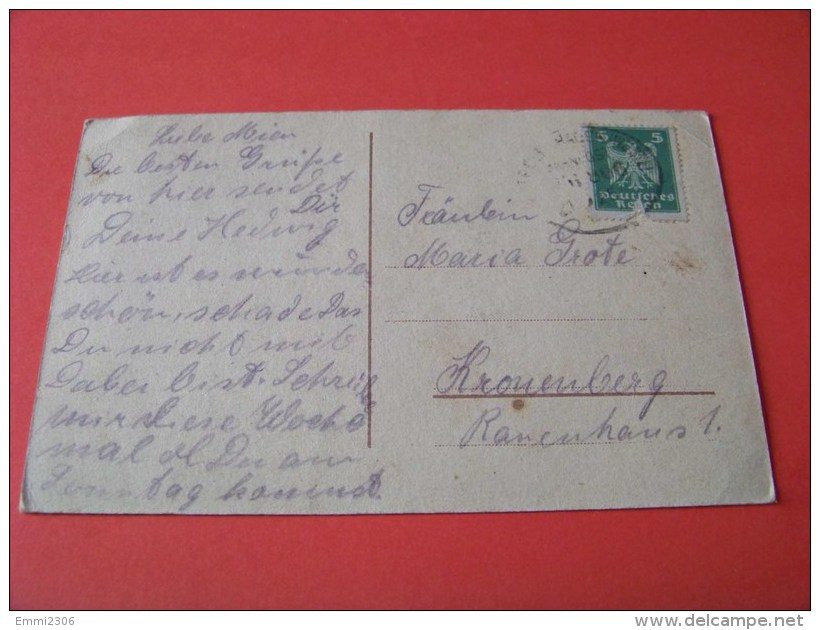 Liebe Mien
Die besten Grüße
von hier sendet
Dir
Deine Hedwig
Hier ist es wunder
schön, schade das
Du nicht mit
Dabei bist. Schreibe
mir diese Woche
mal ob Du am
Sonntag kommst.
5 5
Deutsches
Reich
Fräulein
Maria Grote
Kronenberg
Rauenhaus 1.
Emmi2306
delcampe.net